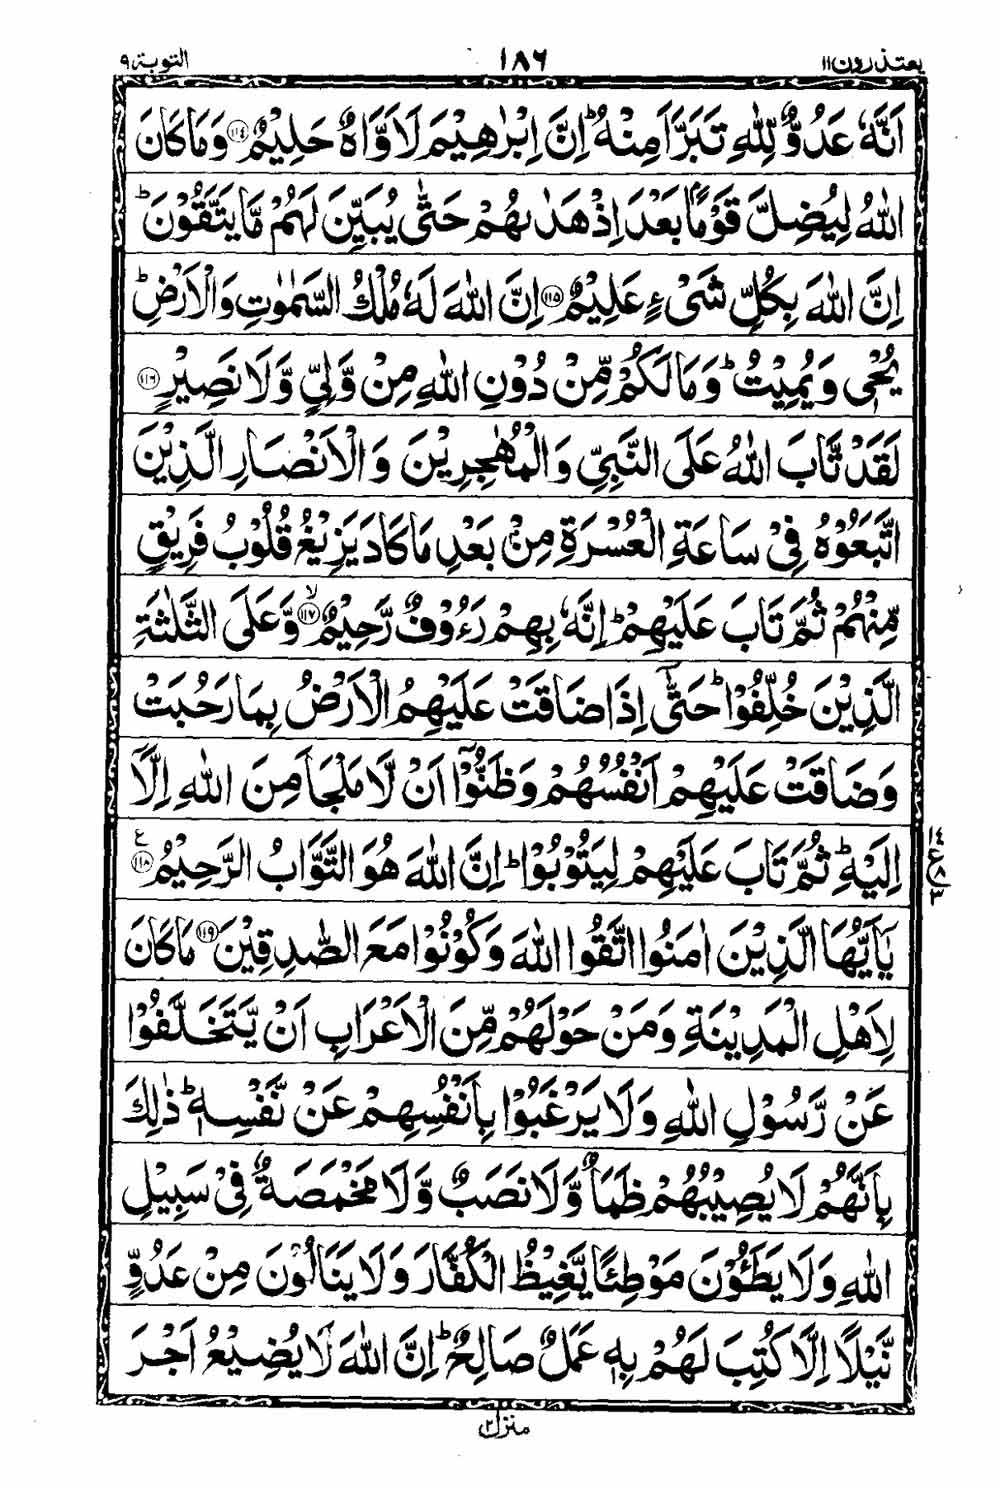 يعتذرون ١١ ١٨٦ التوبة ٩
اَنَّهٗ عَدُوٌّ لِّلّٰهِ تَبَرَّاَ مِنْهُ ؕ اِنَّ اِبْرٰهِيْمَ لَاَوَّاهٌ حَلِيْمٌ ﴿۱۱۴﴾ وَمَا كَانَ
اللّٰهُ لِيُضِلَّ قَوْمًۢا بَعْدَ اِذْ هَدٰىهُمْ حَتّٰى يُبَيِّنَ لَهُمْ مَّا يَتَّقُوْنَ ؕ
اِنَّ اللّٰهَ بِكُلِّ شَىْءٍ عَلِيْمٌ ﴿۱۱۵﴾ اِنَّ اللّٰهَ لَهٗ مُلْكُ السَّمٰوٰتِ وَالْاَرْضِ ؕ
يُحْىٖ وَيُمِيْتُ ؕ وَمَا لَكُمْ مِّنْ دُوْنِ اللّٰهِ مِنْ وَّلِىٍّ وَّلَا نَصِيْرٍ ﴿۱۱۶﴾
لَقَدْ تَّابَ اللّٰهُ عَلَى النَّبِىِّ وَالْمُهٰجِرِيْنَ وَالْاَنْصَارِ الَّذِيْنَ
اتَّبَعُوْهُ فِىْ سَاعَةِ الْعُسْرَةِ مِنْۢ بَعْدِ مَا كَادَ يَزِيْغُ قُلُوْبُ فَرِيْقٍ
مِّنْهُمْ ثُمَّ تَابَ عَلَيْهِمْ ؕ اِنَّهٗ بِهِمْ رَءُوْفٌ رَّحِيْمٌ ۙ﴿۱۱۷﴾ وَّعَلَى الثَّلٰثَةِ
الَّذِيْنَ خُلِّفُوْا ؕ حَتّٰۤى اِذَا ضَاقَتْ عَلَيْهِمُ الْاَرْضُ بِمَا رَحُبَتْ
وَضَاقَتْ عَلَيْهِمْ اَنْفُسُهُمْ وَظَنُّوْۤا اَنْ لَّا مَلْجَاَ مِنَ اللّٰهِ اِلَّاۤ
اِلَيْهِ ؕ ثُمَّ تَابَ عَلَيْهِمْ لِيَتُوْبُوْا ؕ اِنَّ اللّٰهَ هُوَ التَّوَّابُ الرَّحِيْمُ ﴿۱۱۸﴾ ع
١٤ ع ٨ ٣
يٰۤاَيُّهَا الَّذِيْنَ اٰمَنُوا اتَّقُوا اللّٰهَ وَكُوْنُوْا مَعَ الصّٰدِقِيْنَ ﴿۱۱۹﴾ مَا كَانَ
لِاَهْلِ الْمَدِيْنَةِ وَمَنْ حَوْلَهُمْ مِّنَ الْاَعْرَابِ اَنْ يَّتَخَلَّفُوْا
عَنْ رَّسُوْلِ اللّٰهِ وَلَا يَرْغَبُوْا بِاَنْفُسِهِمْ عَنْ نَّفْسِهٖ ؕ ذٰلِكَ
بِاَنَّهُمْ لَا يُصِيْبُهُمْ ظَمَاٌ وَّلَا نَصَبٌ وَّلَا مَخْمَصَةٌ فِىْ سَبِيْلِ
اللّٰهِ وَلَا يَطَئُوْنَ مَوْطِئًا يَّغِيْظُ الْكُفَّارَ وَلَا يَنَالُوْنَ مِنْ عَدُوٍّ
نَّيْلًا اِلَّا كُتِبَ لَهُمْ بِهٖ عَمَلٌ صَالِحٌ ؕ اِنَّ اللّٰهَ لَا يُضِيْعُ اَجْرَ
منزل ٢